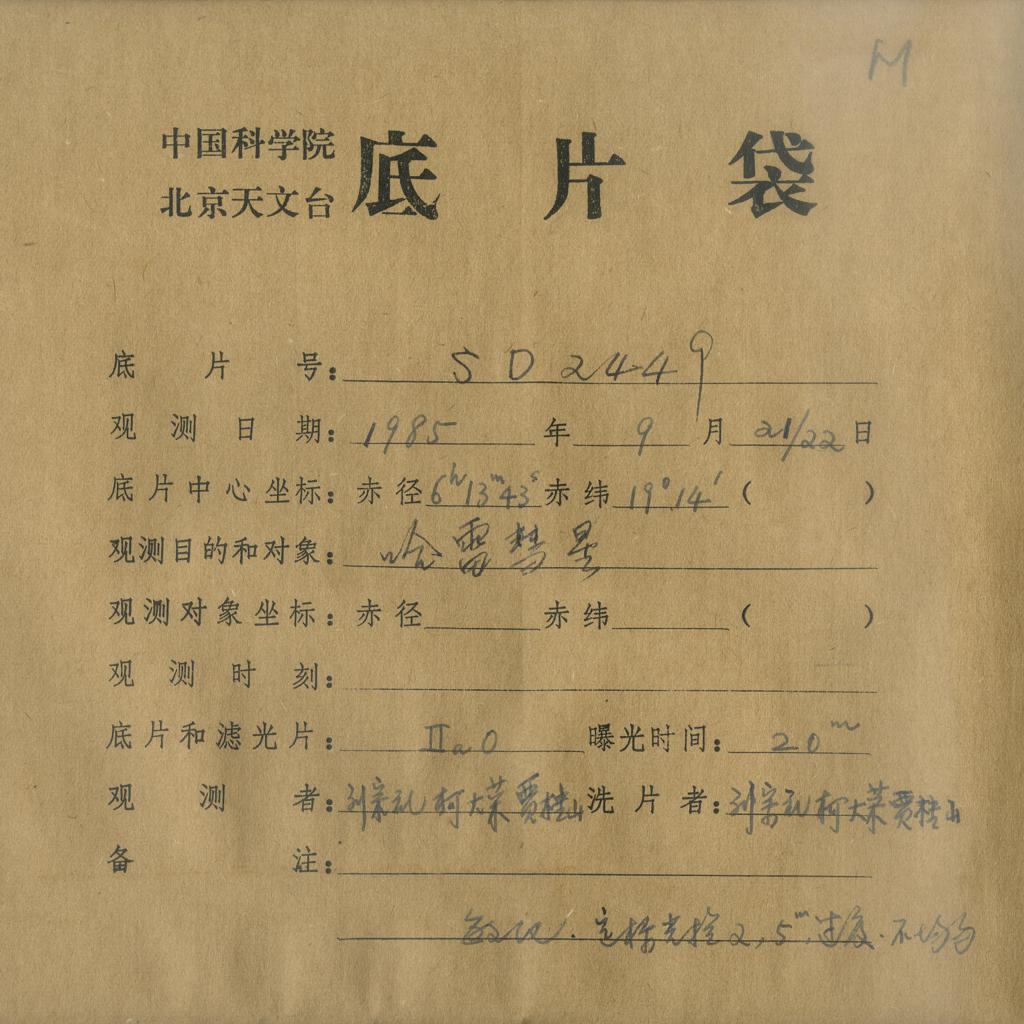 M
中国科学院
北京天文台
底片袋
底片号：SD2449
观测日期：1985年9月21/22日
底片中心坐标：赤径6ʰ13ᵐ43ˢ赤纬19°14′（　）
观测目的和对象：哈雷彗星
观测对象坐标：赤径 赤纬 （　）
观测时刻：
底片和滤光片：ⅡaO 曝光时间：20ᵐ
观测者：刘宗礼 柯大荣 贾桂山 洗片者：刘宗礼 柯大荣 贾桂山
备注：
敏化.定标光楼2,5ᵐ,过度.不均匀